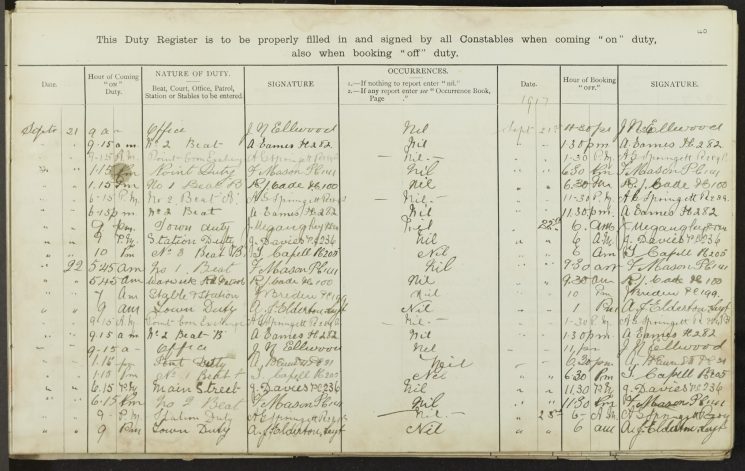 40
This Duty Register is to be properly filled in and signed by all Constables when coming "on" duty,
also when booking "off" duty.
Date. Hour of Coming "ON" Duty. NATURE OF DUTY. Beat, Court, Office, Patrol, Station or Stables to be entered. SIGNATURE OCCURRENCES. 1.—If nothing to report enter "nil." 2.—If any report enter see "Occurrence Book, Page ." Date. Hour of Booking "OFF." SIGNATURE.
1917
Septr 21 9 am Office J N Ellwood Nil Sept 21st J N Ellwood
" " 9.15 am No 2 Beat A Eames H 282 Nil " " 1.30 pm A Eames H 282
" " 9-15 A.M. — Nil — " " 1-30 P.M.
" " 1.15 Pm Point Duty F Mason Nil " " 6.30 Pm F Mason
" " 1.15 Pm No 1 Beat B R J Cade 100 Nil " " 6.30 Pm R. J. Cade 100
" " 6-15 P.M. No 2 Beat A H E Springett — Nil — " " 11-30 P.M. H E Springett
" " 6.15 pm No 2 Beat A Eames H 282 Nil " " 11.30 pm A Eames H 282
" " 9 pm Town Duty Nil " 22nd 6 am
" " 9 P.M. Station Duty J. Davies P.C. 236 Nil " " 6 A.M. J. Davies P.C. 236
" " 10 Pm No 3 Beat J Capell B 205 Nil " " 6 Am J Capell B 205
" 22 5.45 am No 1 Beat F Mason Nil " " 9.30 am F Mason
" " 5.45 am R J Cade 100 Nil " " 9.30 am R. J. Cade 100
" " 7 Am Stable & Station J Breden 199 Nil " " 10 Pm J Breden P.C. 199
" " 9 am Town Duty A. J. Elderton, Sergt Nil " " 1 Pm A. J. Elderton, Sergt
" " 9-15 A.M. H E Springett — Nil — " " 1-30 P.M. H E Springett
" " 9.15 am No 2 Beat B A Eames H 282 Nil " " 1.30 pm A Eames H 282
" " 9-15 a Office J N Ellwood Nil " " 11 pm J N Ellwood
" " 1.15 pm Duty Nil " " 6.30 pm
" " 1.15 Pm No 1 Beat J Capell B 205 Nil " " 6.30 Pm J Capell B 205
" " 6.15 P.M. Main Street J. Davies P.C. 236 Nil " " 11.30 P.M. J. Davies P.C. 236
" " 6.15 Pm No 2 Beat F Mason Nil " " 11.30 Pm F Mason
" " 9 - P.M. Station Duty H E Springett — Nil — " 23rd 6 - A.M. H E Springett
" " 9 Pm Town Duty A. J. Elderton, Sergt Nil " " 6 am A. J. Elderton, Sergt